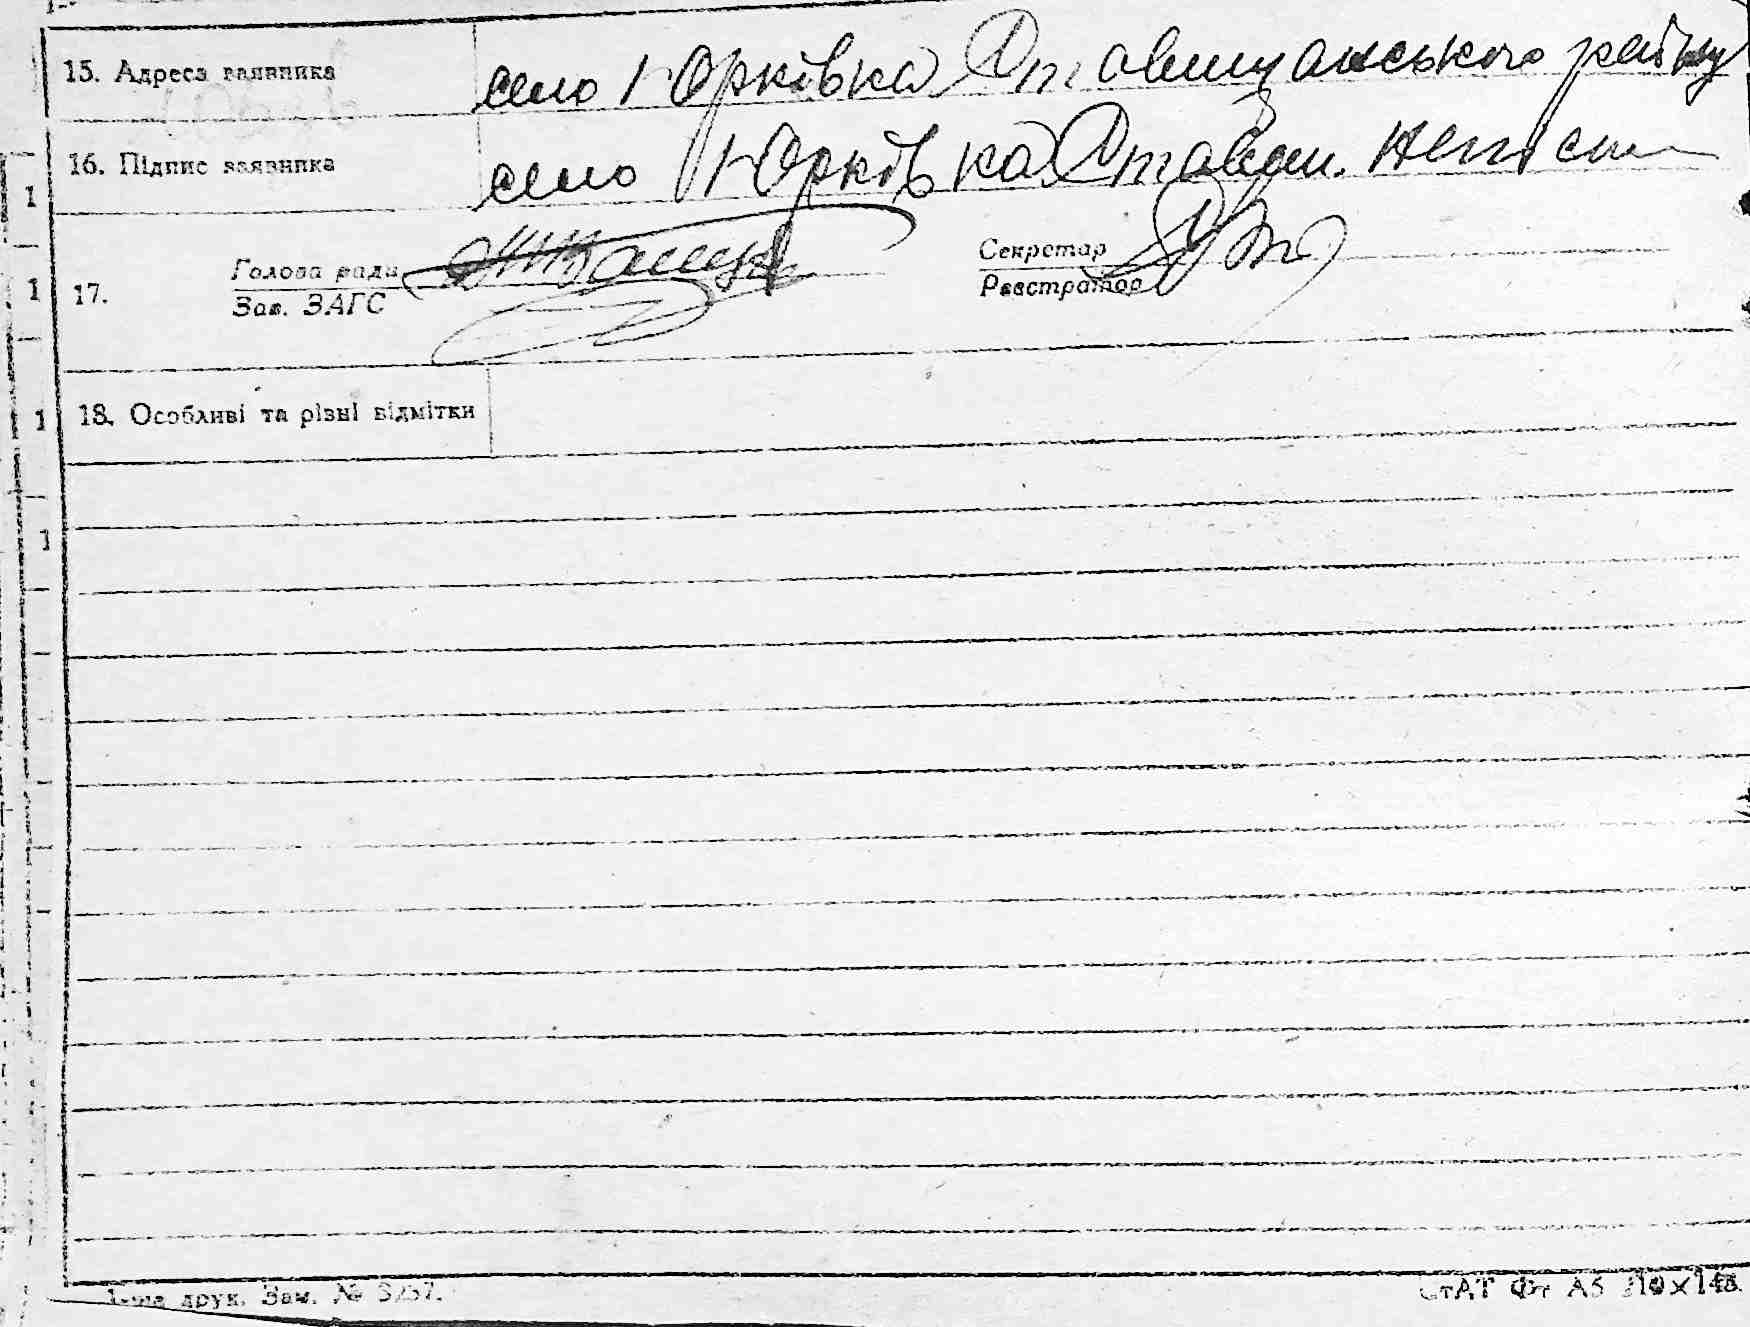 15. Адреса заявника село Юрківка Ставищанського району
16. Підпис заявника село Юрківка Ставищ.
17. Голова ради Секретар
Зав. ЗАГС Реєстратор
18. Особливі та різні відмітки
1
1
1
1
друк. Зам. № 3257. СтАТ Фт А5 210×148.